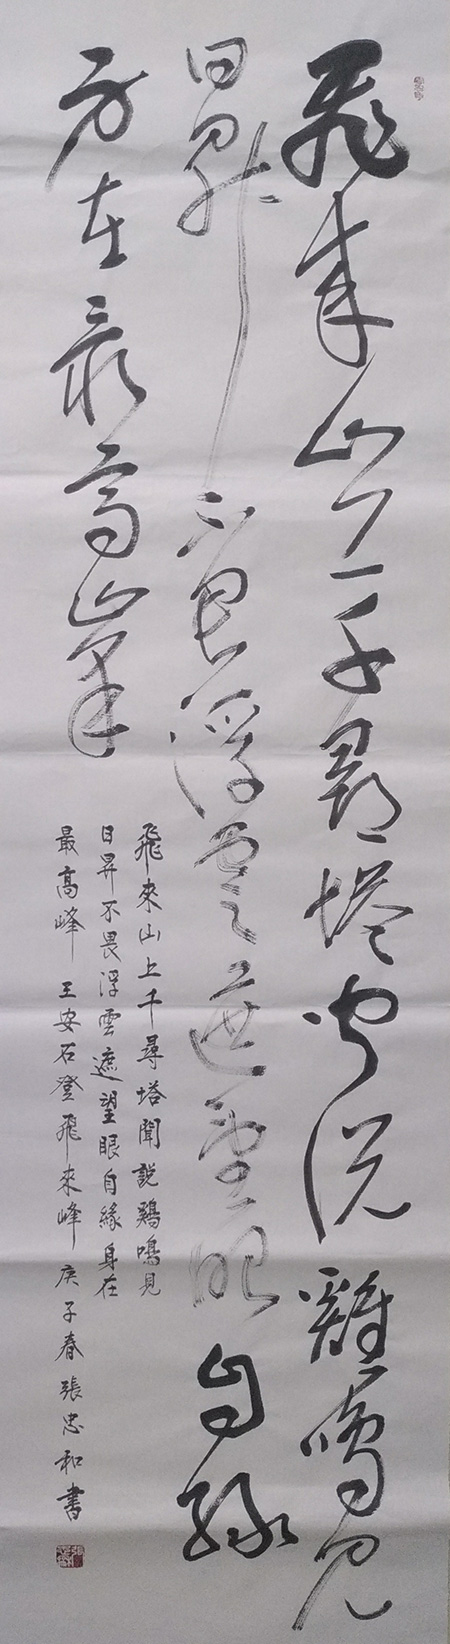 飛來山上千尋塔聞説雞鳴見
日昇不畏浮雲遮望眼自緣
身在最高峯
飛來山上千尋塔聞說鷄鳴見
日昇不畏浮雲遮望眼自緣身在
最高峰 王安石登飛來峰 庚子春張忠和書